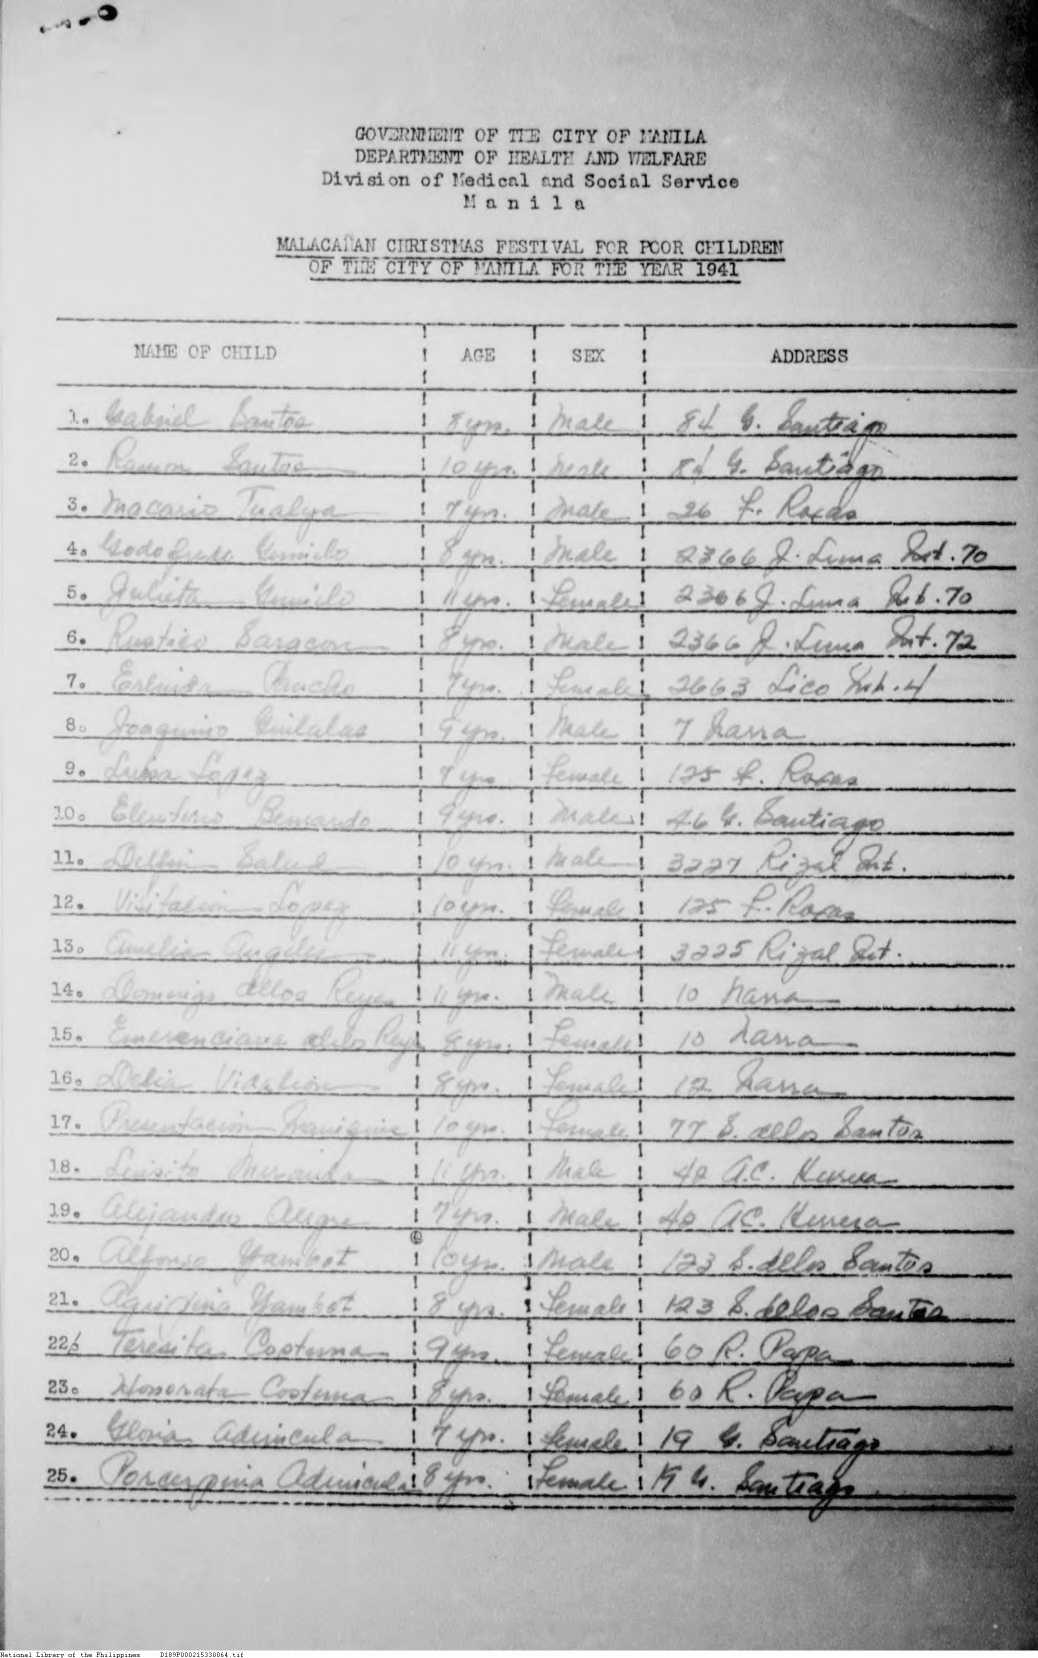 GOVERNMENT OF THE CITY OF MANILA
DEPARTMENT OF HEALTH AND WELFARE
Division of Medical and Social Service
M a n i l a
MALACAÑAN CHRISTMAS FESTIVAL FOR POOR CHILDREN
OF THE CITY OF MANILA FOR THE YEAR 1941
NAME OF CHILD AGE SEX ADDRESS
1. Gabriel Santos 8 yrs. Male 84 G. Santiago
2. Ramon Santos 10 yrs. Male 84 G. Santiago
3. Macario Tualya 7 yrs. Male 26 F. Roxas
4. Godofredo 8 yrs. Male 2366 J. Luna Int. 70
5. Julieta 11 yrs. Female 2366 J. Luna Int. 70
6. Rustico Saracon 8 yrs. Male 2366 J. Luna Int. 72
7. Erlinda 7 yrs. Female 2663 Lico Int. 4
8. Joaquinio 9 yrs. Male 7 Narra
9. Luisa Lopez 7 yrs Female 125 F. Roxas
10. Eleuterio Bernardo 9 yrs. Male 46 G. Santiago
11. Delfin Salud 10 yrs. Male 3227 Rizal Int.
12. Visitacion Lopez 10 yrs. Female 125 F. Roxas
13. Amelia Angeles 11 yrs. Female 3225 Rizal Int.
14. Domingo delos Reyes 11 yrs. Male 10 Narra
15. Emerenciana delos Reyes 8 yrs. Female 10 Narra
16. Delia Vidalion 8 yrs. Female 12 Narra
17. Presentacion 10 yrs. Female 77 S. delos Santos
18. Luisito Miranda 11 yrs. Male 40 A.C. Herrera
19. Alejandro Alegre 7 yrs. Male 40 A.C. Herrera
20. Alfonso Yambot 10 yrs. Male 123 S. delos Santos
21. Agripina Yambot 8 yrs. Female 123 S. delos Santos
22. Teresita Costuna 9 yrs. Female 60 R. Papa
23. Honorata Costuna 8 yrs. Female 60 R. Papa
24. Gloria Adincula 7 yrs. Female 19 G. Santiago
25. Adincula 8 yrs. Female 19 G. Santiago
National Library of the Philippines D189P000215330064.tif